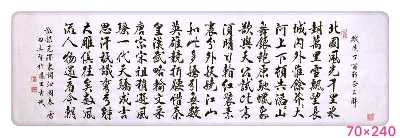 北國風光千里冰
封萬里雪飄望長
城内外惟餘莽莽大
河上下頓失滔滔山
舞銀蛇原馳蠟象
欲與天公試比高
須晴日看紅裝素
裹分外妖嬈江山
如此多嬌引無數
英雄競折腰惜秦
皇漢武略輸文采
唐宗宋祖稍遜風
騷一代天驕成吉
思汗祇識彎弓射
大雕俱往矣數風
流人物還看今朝
70×240